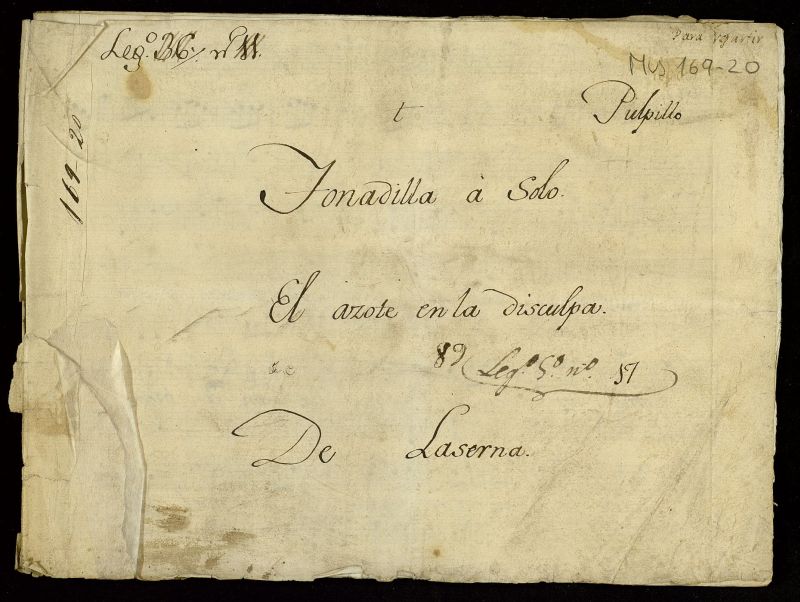 Para repartir
Mus 169-20
Leg.º
169-20
t Pulpillo
Tonadilla à Solo.
El azote en la disculpa.
89 Leg.º 5.º n.º 17
De Laserna.